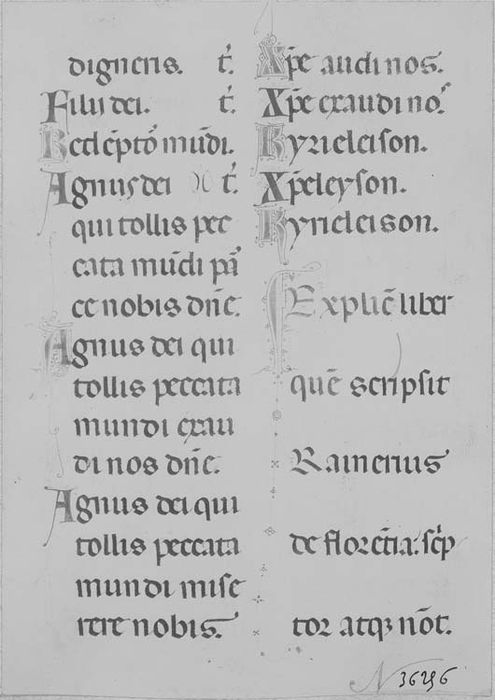 digneris. t̄.
Filii dei. t̄.
Redēptor̄ mūdi.
Agnus dei t̄.
qui tollis pec
cata mūdi par̄
ce nobis dn̄e.
Agnus dei qui
tollis peccata
mundi exau
di nos dn̄e.
Agnus dei qui
tollis peccata
mundi mise
rere nobis.
Xp̄e audi nos.
Xp̄e exaudi nos.
Kyrieleison.
Xp̄eleyson.
Kyrieleison.
Explic̄ liber
quē scripsit
Rainerius
de florētia: sc̄p
tor atq3 nōt.